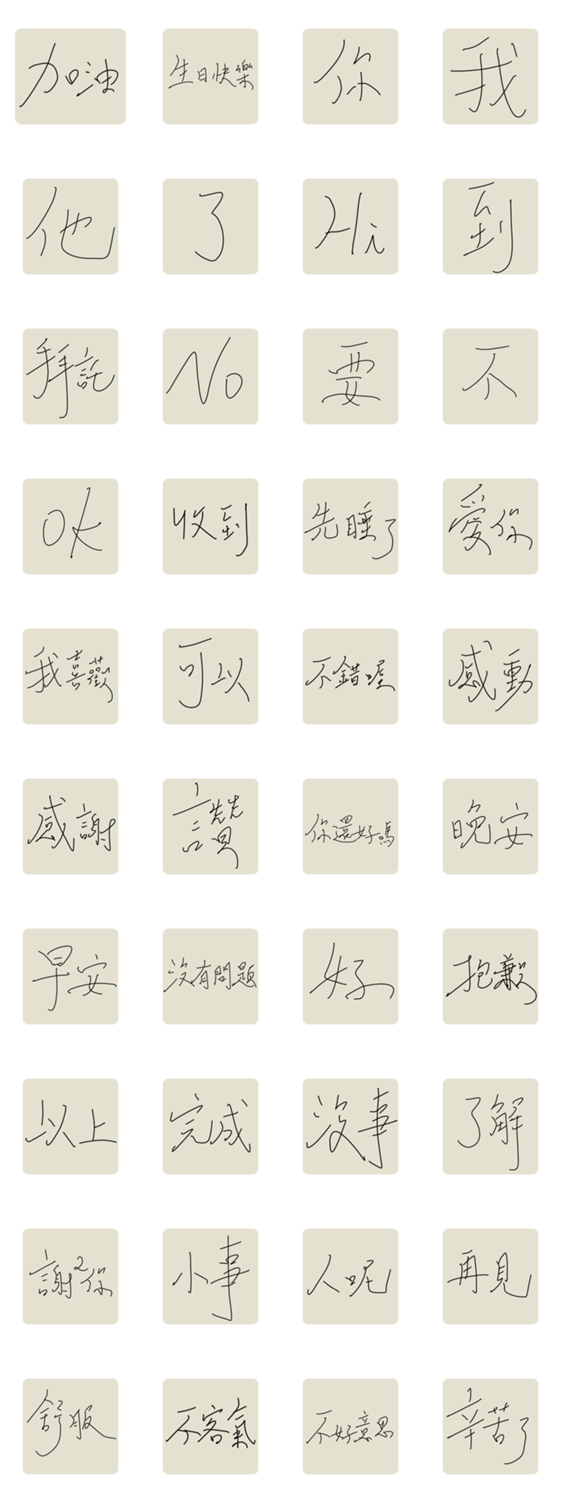 加油 生日快樂 你 我
他 了 Hi 到
拜託 No 要 不
OK 收到 先睡了 愛你
我喜歡 可以 不錯喔 感動
感謝 讚 你還好嗎 晚安
早安 沒有問題 好 抱歉
以上 完成 沒事 了解
謝2你 小事 人呢 再見
舒服 不客氣 不好意思 辛苦了